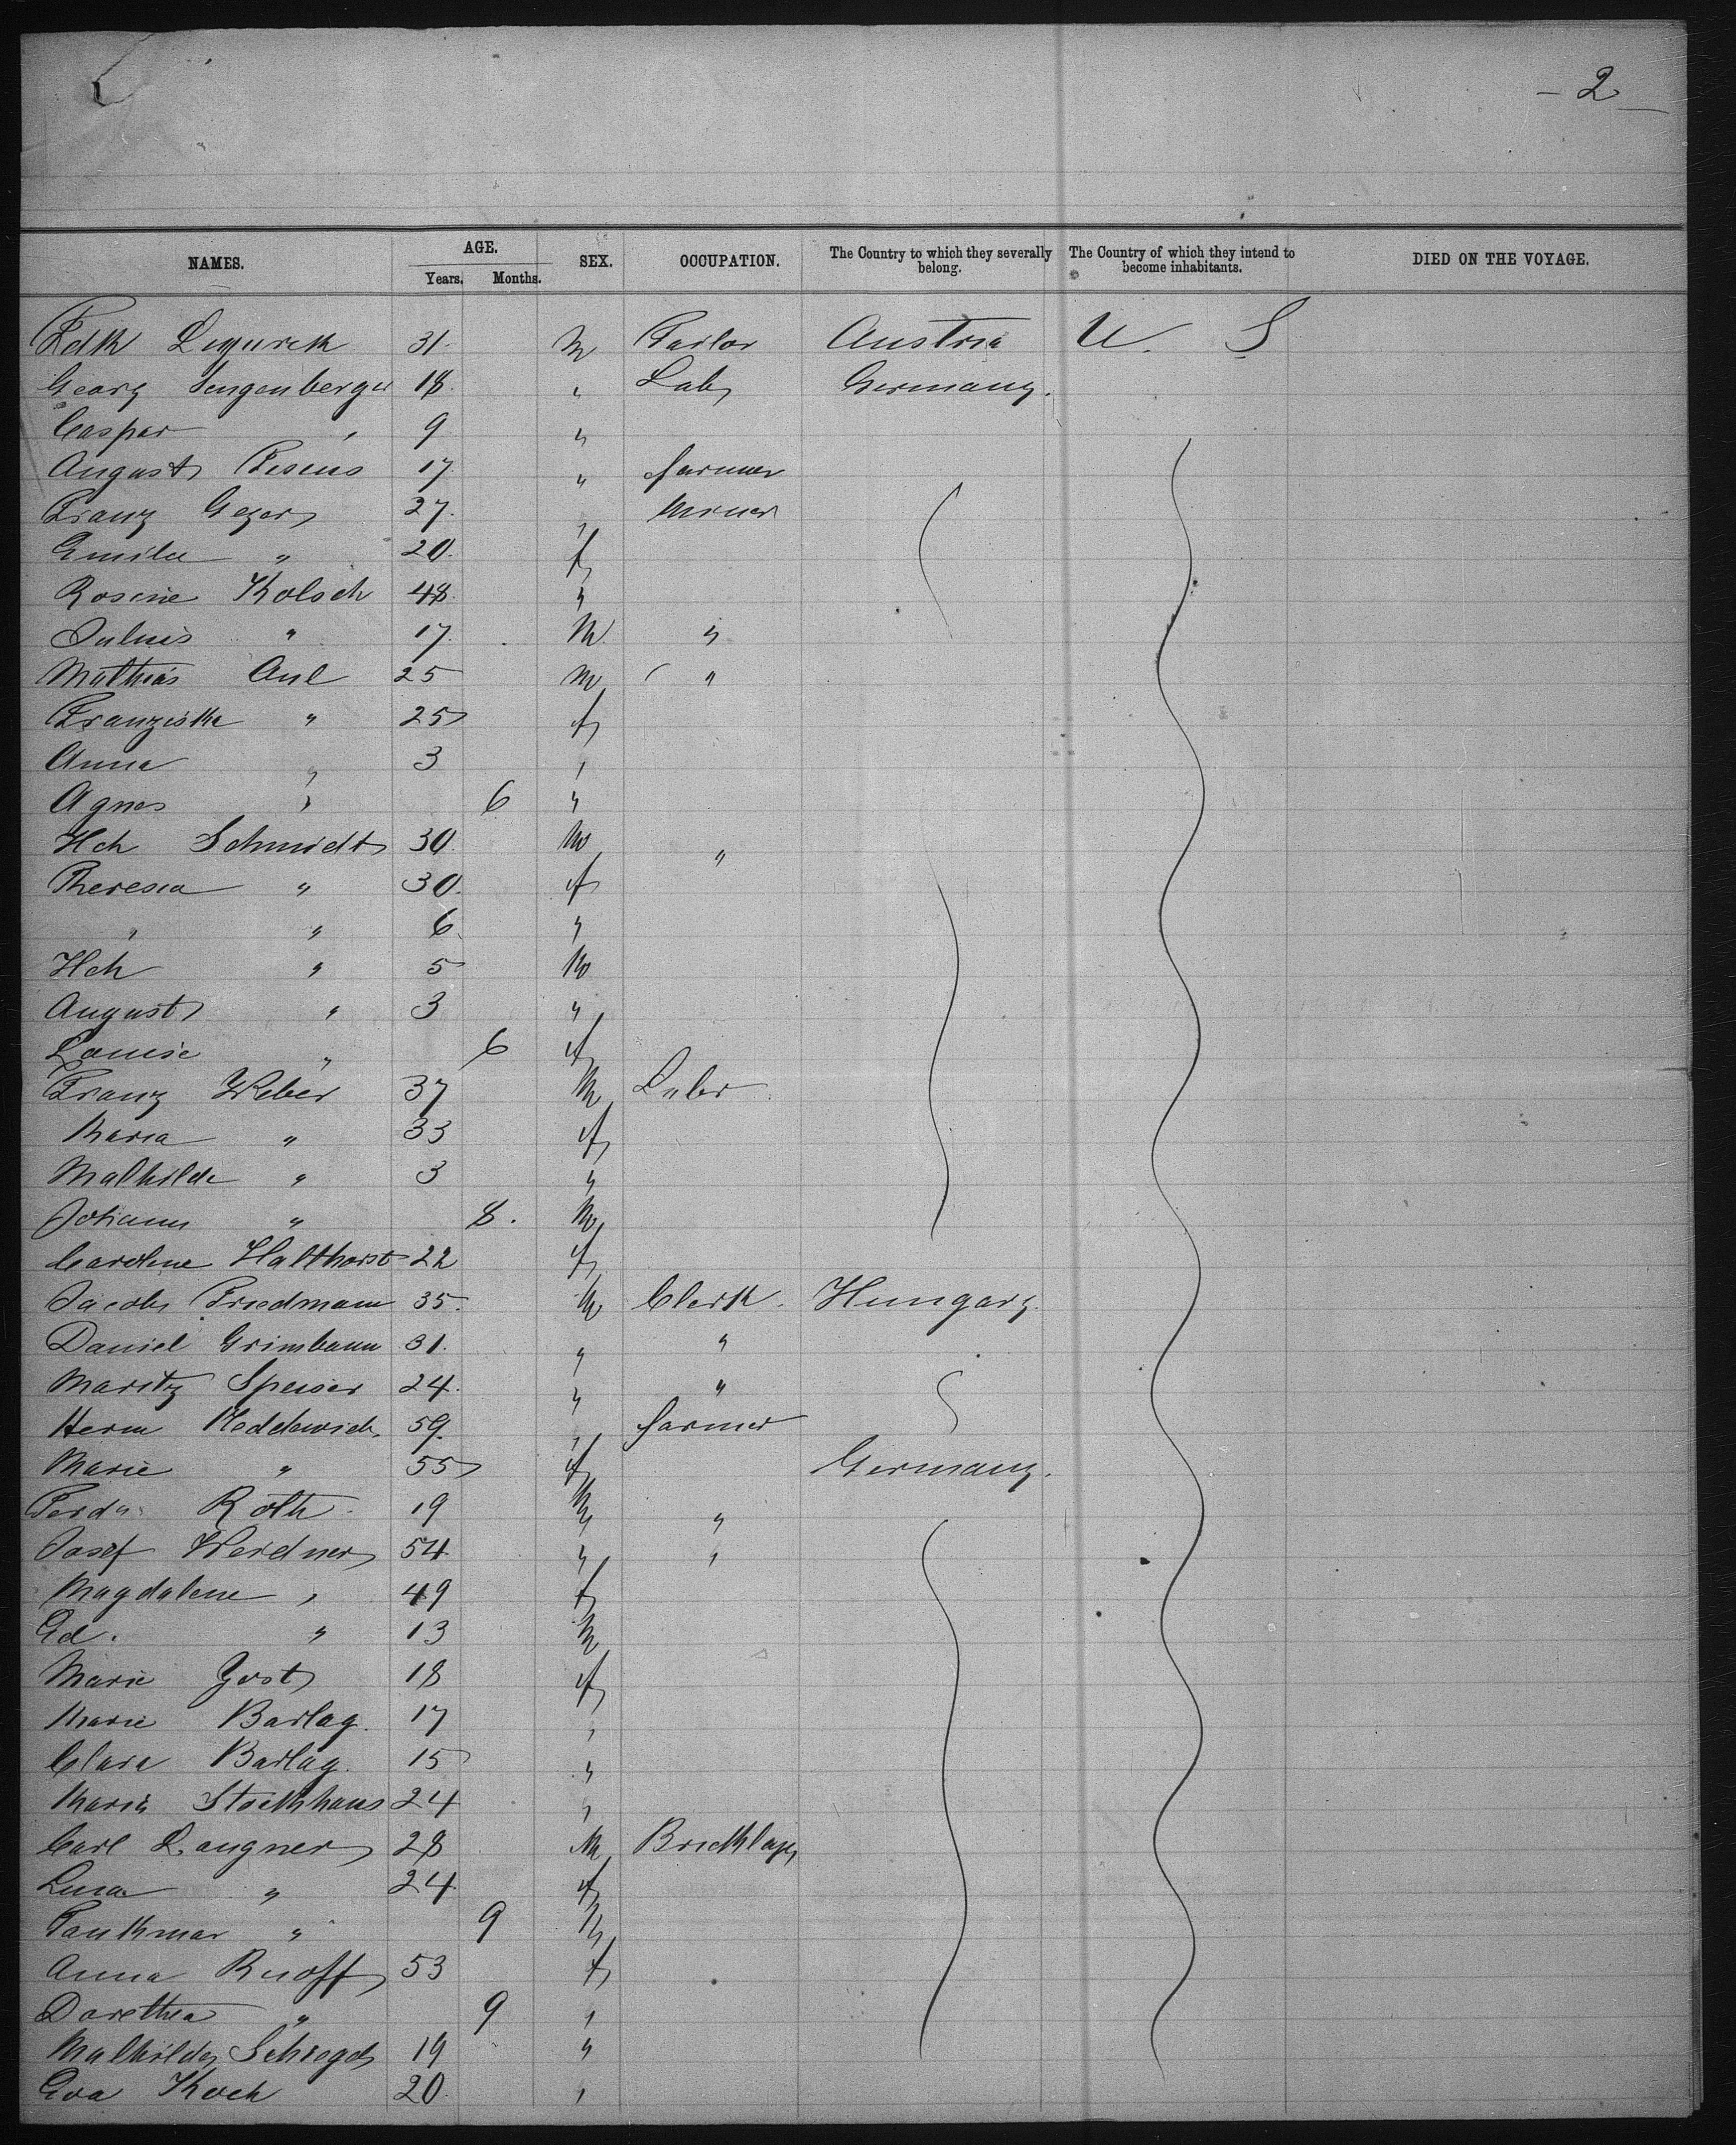 - 2 -
NAMES. AGE. Years. Months. SEX. OCCUPATION. The Country to which they severally belong. The Country of which they intend to become inhabitants. DIED ON THE VOYAGE.
31. m Tailor Austria U. S
Georg Sengenberger 18. " Lab Germany.
Caspar " 9 "
August 17. " farmer
Franz Geger 27. " Miner
Emilie " 20. f
Rosine Kolsch 48. "
Julius " 17. M "
Mathias Aul 25 m "
Franziska " 25 f
Anna " 3 "
Agnes " 6 "
Hch Schmidt 30. m "
Theresia " 30. f
" " 6 "
Hch " 5 m
August " 3 "
Louise " 6 f
Franz Weber 37 M Labr
Maria " 33 f
Mathilde " 3 "
Johann " 8. M
Caroline Halthorst 22 f
Jacob Friedmann 35. M Clerk. Hungary.
Daniel Grimbaum 31. " "
Moritz Speiser 24. " "
Herm Heddewich 59. " farmer
Marie " 55 f Germany.
Ferd. Roth 19 M "
Josef Weidner 54 " "
Magdalene " 49 f
Ed. " 13 M
Marie Yost 18 f
Marie Barlag. 17 "
Clara Barlag. 15 "
Maria Stockhaus 24 "
Carl Langner 28 M Bricklayr
Lina " 24. f
" 9 M
Anna Ruoff 53 f
Dorethea " 9 "
Mathilde 19 "
Eva Koch 20. "